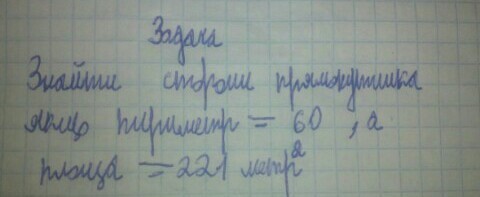 Задача
Знайти сторони прямокутника
якщо периметр = 60 , а
площа = 221 метр²